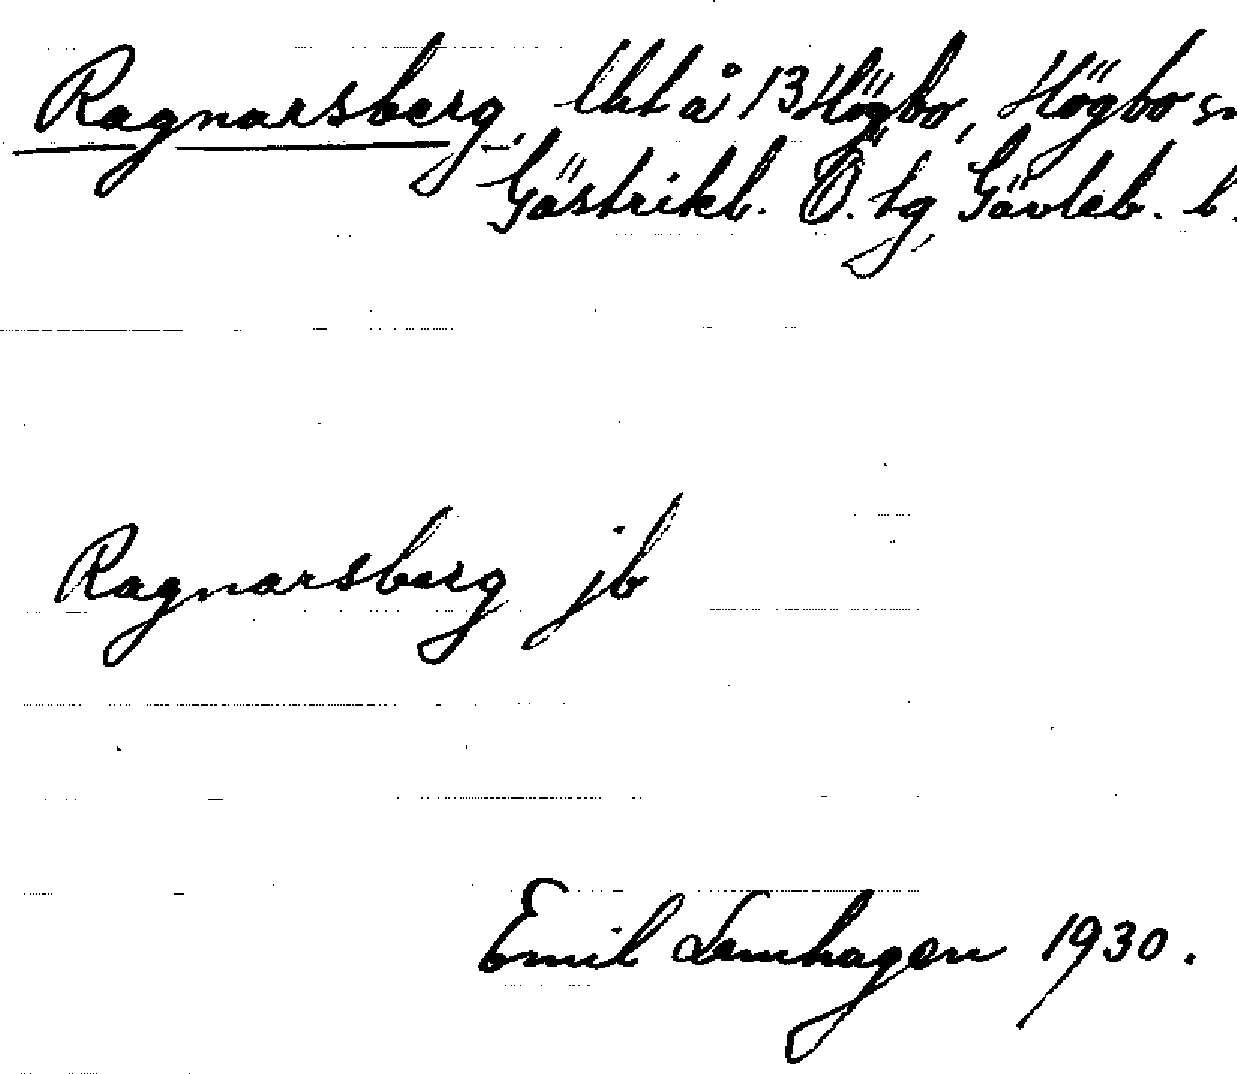 Ragnarsberg, lht å 13 Högbo, Högbo sn
Gästrikl. Ö. tg, Gävleb. l.
Ragnarsberg jb
Emil Lemhagen 1930.